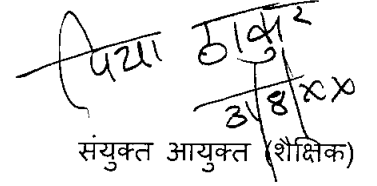 पिया ठाकुर
3/8/XX
संयुक्त आयुक्त (शैक्षिक)